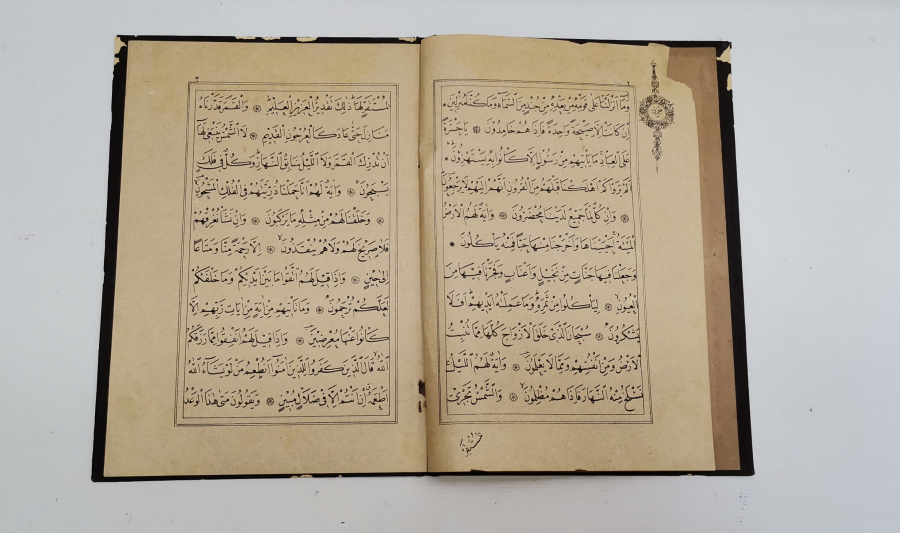 وَمَا اَنْزَلْنَا عَلٰى قَوْمِهِ مِنْ بَعْدِهِ مِنْ جُنْدٍ مِنَ السَّمَاءِ وَمَا كُنَّا مُنْزِلِينَ
اِنْ كَانَتْ اِلَّا صَيْحَةً وَاحِدَةً فَاِذَا هُمْ خَامِدُونَ يَا حَسْرَةً
عَلَى الْعِبَادِ مَا يَأْتِيهِمْ مِنْ رَسُولٍ اِلَّا كَانُوا بِهِ يَسْتَهْزِؤُنَ
اَلَمْ يَرَوْا كَمْ اَهْلَكْنَا قَبْلَهُمْ مِنَ الْقُرُونِ اَنَّهُمْ اِلَيْهِمْ لَا يَرْجِعُونَ
وَاِنْ كُلٌّ لَمَّا جَمِيعٌ لَدَيْنَا مُحْضَرُونَ وَاٰيَةٌ لَهُمُ الْاَرْضُ
الْمَيْتَةُ اَحْيَيْنَاهَا وَاَخْرَجْنَا مِنْهَا حَبًّا فَمِنْهُ يَأْكُلُونَ
وَجَعَلْنَا فِيهَا جَنَّاتٍ مِنْ نَخِيلٍ وَاَعْنَابٍ وَفَجَّرْنَا فِيهَا مِنَ
الْعُيُونِ لِيَأْكُلُوا مِنْ ثَمَرِهِ وَمَا عَمِلَتْهُ اَيْدِيهِمْ اَفَلَا
يَشْكُرُونَ سُبْحَانَ الَّذِي خَلَقَ الْاَزْوَاجَ كُلَّهَا مِمَّا تُنْبِتُ
الْاَرْضُ وَمِنْ اَنْفُسِهِمْ وَمِمَّا لَا يَعْلَمُونَ وَاٰيَةٌ لَهُمُ اللَّيْلُ
نَسْلَخُ مِنْهُ النَّهَارَ فَاِذَا هُمْ مُظْلِمُونَ وَالشَّمْسُ تَجْرِي
لمستقر
٣
لِمُسْتَقَرٍّ لَهَا ذٰلِكَ تَقْدِيرُ الْعَزِيزِ الْعَلِيمِ وَالْقَمَرَ قَدَّرْنَاهُ
مَنَازِلَ حَتّٰى عَادَ كَالْعُرْجُونِ الْقَدِيمِ لَا الشَّمْسُ يَنْبَغِي لَهَا
اَنْ تُدْرِكَ الْقَمَرَ وَلَا اللَّيْلُ سَابِقُ النَّهَارِ وَكُلٌّ فِي فَلَكٍ
يَسْبَحُونَ وَاٰيَةٌ لَهُمْ اَنَّا حَمَلْنَا ذُرِّيَّتَهُمْ فِي الْفُلْكِ الْمَشْحُونِ
وَخَلَقْنَا لَهُمْ مِنْ مِثْلِهِ مَا يَرْكَبُونَ وَاِنْ نَشَأْ نُغْرِقْهُمْ
فَلَا صَرِيخَ لَهُمْ وَلَا هُمْ يُنْقَذُونَ اِلَّا رَحْمَةً مِنَّا وَمَتَاعًا
اِلٰى حِينٍ وَاِذَا قِيلَ لَهُمُ اتَّقُوا مَا بَيْنَ اَيْدِيكُمْ وَمَا خَلْفَكُمْ
لَعَلَّكُمْ تُرْحَمُونَ وَمَا تَأْتِيهِمْ مِنْ اٰيَةٍ مِنْ اٰيَاتِ رَبِّهِمْ اِلَّا
كَانُوا عَنْهَا مُعْرِضِينَ وَاِذَا قِيلَ لَهُمْ اَنْفِقُوا مِمَّا رَزَقَكُمُ
اللّٰهُ قَالَ الَّذِينَ كَفَرُوا لِلَّذِينَ اٰمَنُوا اَنُطْعِمُ مَنْ لَوْ يَشَاءُ اللّٰهُ
اَطْعَمَهُ اِنْ اَنْتُمْ اِلَّا فِي ضَلَالٍ مُبِينٍ وَيَقُولُونَ مَتٰى هٰذَا الْوَعْدُ